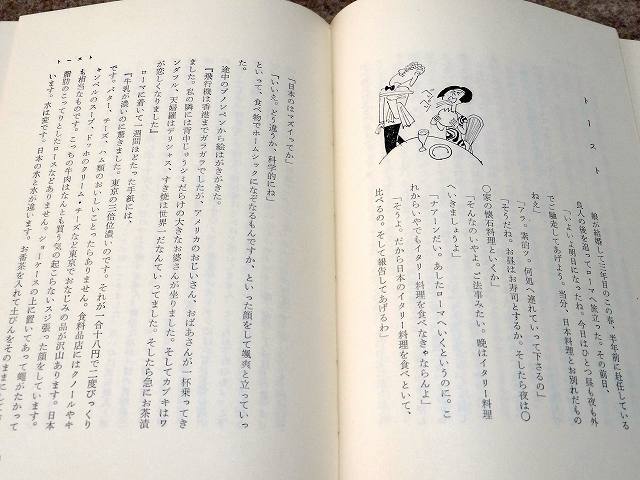 トースト
娘が結婚して三年目のこの春、半年前に赴任している
良人の後を追ってローマへ旅立った。その前日、
「いよいよ明日になったね。今日はひとつ昼も夜も外
でご馳走してあげよう。当分、日本料理とお別れだもの
ねえ」
「アラ。素的ッ。何処へ連れていって下さるの」
「そうだね。お昼はお寿司とするか。そしたら夜は〇
〇家の懐石料理といくか」
「そんなのいやよ。ご法事みたい。晩はイタリー料理
へいきましょうよ」
「ナアーンだい。あしたローマへいくというのに。こ
れからいやでもイタリー料理を食べなきゃならんよ」
「そうよ。だから日本のイタリー料理を食べといて、
比べるの。そして報告してあげるわ」
「日本のはマズイってか」
「いいえ。どう違うか、科学的にね」
といって、食べ物でホームシックになぞなるもんですか、といった顔をして颯爽と立っていっ
た。
途中のプノンペンから絵はがきがきた。
『飛行機は香港までガラガラでしたが、アメリカのおじいさん、おばあさんが一杯乗ってき
ました。私の隣には背中じゅうシミだらけの大きなお婆さんが坐りました。そしてカブキはワ
ンダフル、天婦羅はデリシャス、すき焼は世界一だなんていってました。そしたら急にお茶漬
が恋しくなりました』
ローマに着いて一週間ほどたった手紙には、
『牛乳が濃いのに驚きました。東京の三倍位濃いのです。それが一合十八円で二度びっくり
です。バター、チーズ、ハム類のおいしいことったらありません。食料品店にはクノールやキ
ャンベルのスープ、ドッホのクリーム・チーズなど東京でおなじみの品が沢山あります。日本
も相当なものです。こっちの牛肉はなんとも買う気の起こらないスジ張った顔をしています。
脂肪のこってりとしたロースなどありません。ショーケースの上に置いてあって蠅がたかって
います。水は変です。日本の水と水が違います。お番茶を入れて土びんをそのままにして
トースト